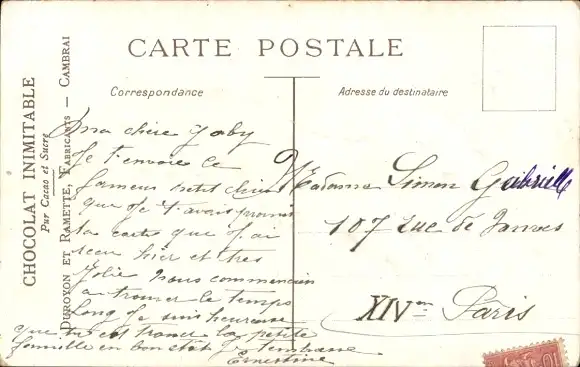 CHOCOLAT INIMITABLE
Pur Cacao et Sucre
DUROYON ET RAMETTE, FABRICANTS — CAMBRAI
CARTE POSTALE
Correspondance
Adresse du destinataire
ma chère Gaby
Je t'envoie le
fameux petit chien
que je t'avais promis
ta carte que j'ai
reçu hier et très
jolie nous commençons
a trouver le temps
long je suis heureuse
que tu est trouvé la petite
famille en bon état je t'embrasse
Ernestine
Madame Simon Gabrielle
107 rue de
XIVem Paris
10